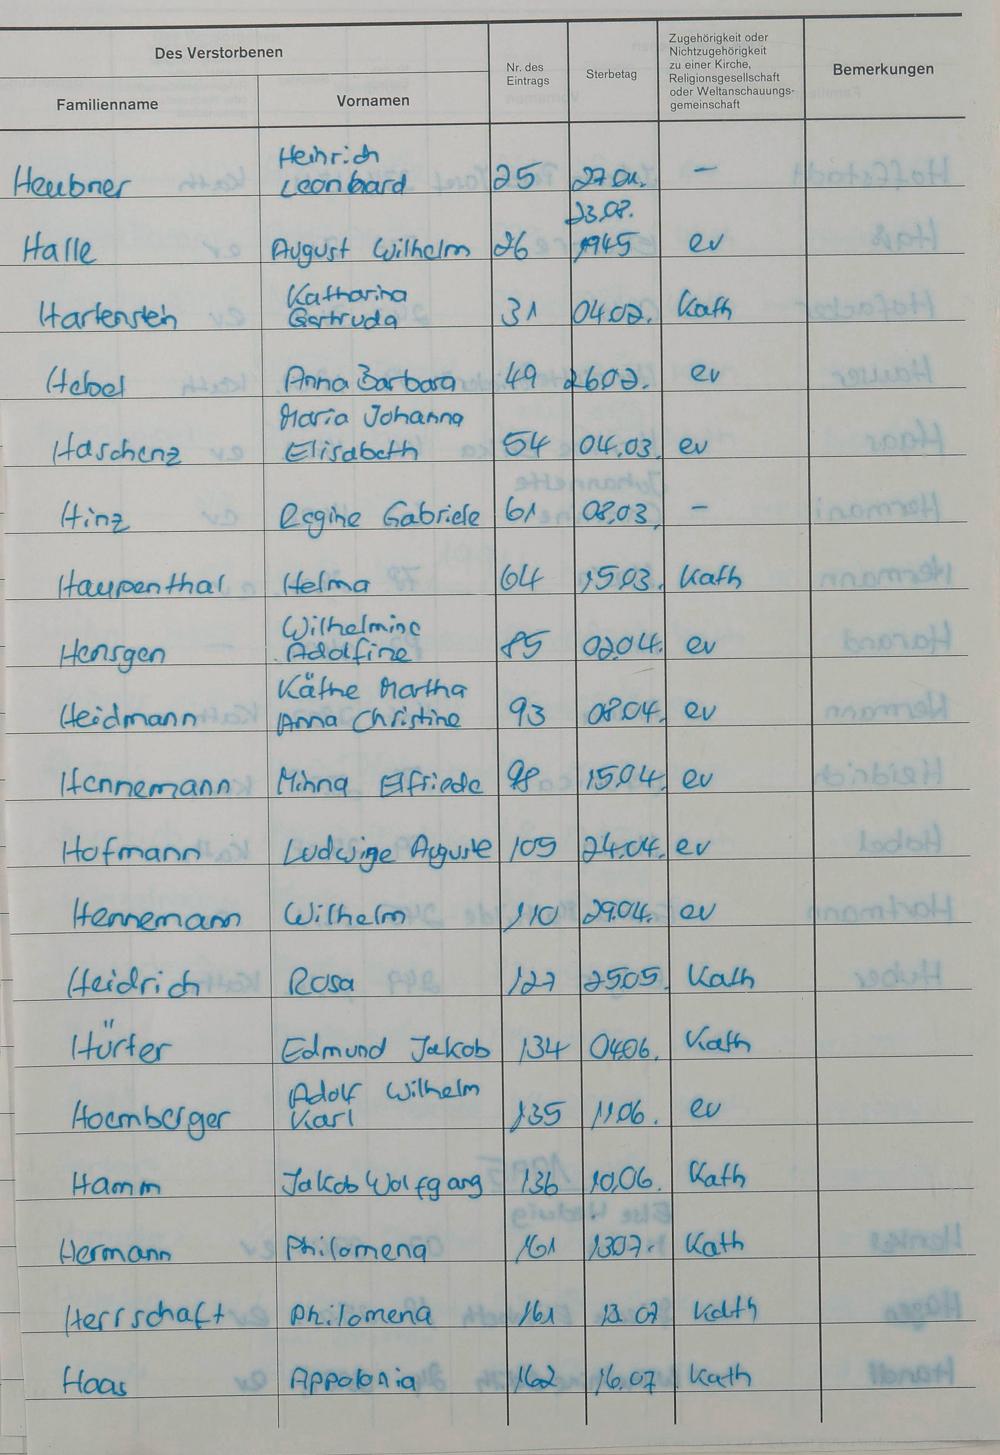 Des Verstorbenen
Familienname
Vornamen
Nr. des
Eintrags
Sterbetag
Zugehörigkeit oder
Nichtzugehörigkeit
zu einer Kirche,
Religionsgesellschaft
oder Weltanschauungs-
gemeinschaft
Bemerkungen
Heinrich
Heubner Leonhard 25 27.01. –
23.08.
Halle August Wilhelm 26 1945 ev
Katharina
Hartenstein Gertruda 31 04.02. Kath
Hebel Anna Barbara 49 26.02. ev
Maria Johanna
Haschenz Elisabeth 54 04.03. ev
Hinz Regine Gabriele 61 08.03. –
Haupenthal Helma 64 15.03. Kath
Wilhelmine
Hensgen Adolfine 85 02.04. ev
Käthe Martha
Heidmann Anna Christine 93 08.04. ev
Hennemann Minna Elfriede 98 15.04. ev
Hofmann Ludwige Auguste 105 24.04. ev
Hennemann Wilhelm 110 29.04. ev
Heidrich Rosa 127 25.05. Kath
Hürter Edmund Jakob 134 04.06. Kath
Adolf Wilhelm
Hoemberger Karl 135 11.06. ev
Hamm Jakob Wolfgang 136 10.06. Kath
Hermann Philomena 161 13.07. Kath
Herrschaft Philomena 161 13.07 Kath
Haas Appolonia 162 16.07 Kath